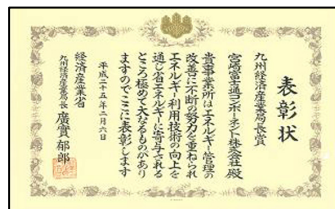 表彰状
九州経済産業局長賞
宮崎富士通コンポーネント株式会社殿
貴事業所はエネルギー管理の
改善に不断の努力を重ねられ
エネルギー利用技術の向上を
通じ省エネルギーに寄与される
ところ極めて大なるものがあり
ますのでここに表彰します
平成二十五年二月六日
経済産業省
九州経済産業局長 廣實郁郎